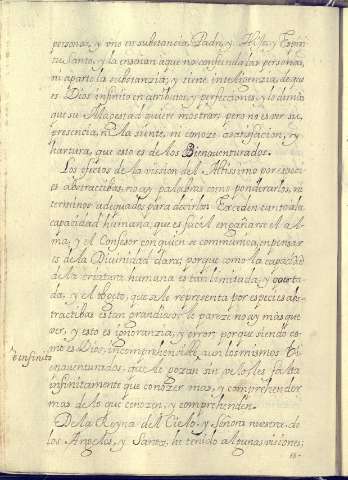 personas, y vno en substancia, Padre, y Hijo, y Espiri
tu Santo, y la enseñan a que no confunda las personas,
ni aparte la substanzia, y tiene inteligenzia de que
es Dios infinito en atributos, y perfecciones, y lo demas
que su Magestad quiere mostrar; pero no es ver su
presencia, ni la siente, ni conoze satisfacion, y
hartura, que esto es de los Bienauenturados.
Los efectos de la vission del Altissimo por especi
es abstractibas, no ay palabras como ponderarlos, ni
terminos adequados para decirlos. Exceden en todo la
capacidad humana, que es facil engañarse el al
ma, y el Confesor con quien se communica, en pensar
es de la Diuinidad clara; porque como la capacidad
de la criatura humana es tan limitada, y coarta
da, y el obgeto, que se le representa por especies abs
tractibas es tan grandioso, le pareze no ay mas que
ver, y esto es ignoranzia, y error; porque siendo co
mo es Dios, incomprehensible, aun los mismos Bi
enauenturados, que le gozan sin velo, les falta
infinito
infinitamente que conozer mas, y comprehender
mas de lo que conozen, y comprehenden.
De la Reyna del Cielo, y Señora nuestra, de
los Angeles, y Santos, he tenido algunas visiones;